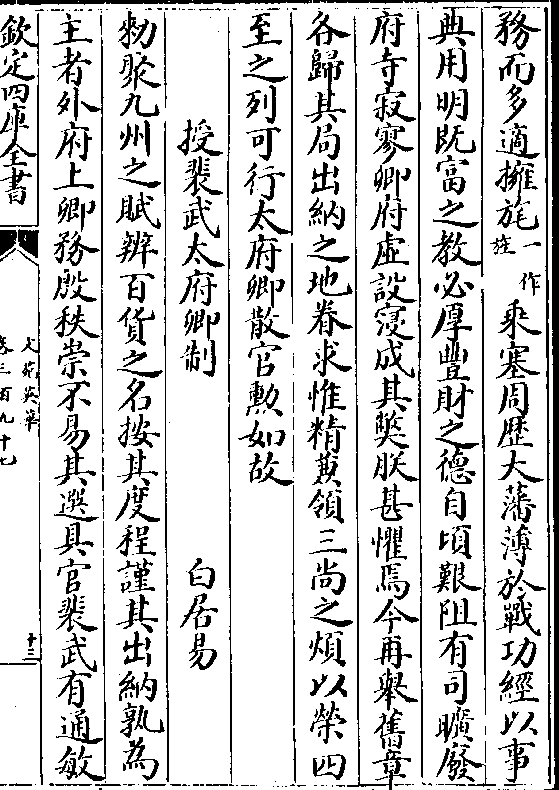 務而多適擁旄一作旌乘塞周歷大藩薄於戰功經以事
典用明既富之教必厚豐財之德自頃艱阻有司曠廢
府寺寂寥卿府虛設寖成其獘朕甚懼焉今再舉舊章
各歸其局出納之地眷求惟精兼領三尚之煩以榮四
至之列可行太府卿散官勲如故
授裴武太府卿制 白居易
勑聚九州之賦辨百貨之名按其度程謹其出納孰為
主者外府上卿務殷秩崇不易其選具官裴武有通敏
欽定四庫全書
文苑英華
卷三百九十七
十三